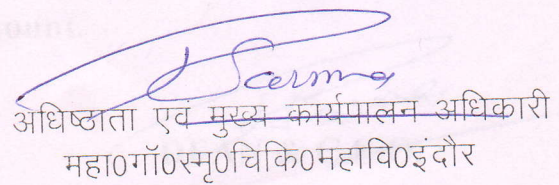 अधिष्ठाता एवं मुख्य कार्यपालन अधिकारी
महा0गाॅ0स्मृ0चिकि0महावि0इंदौर